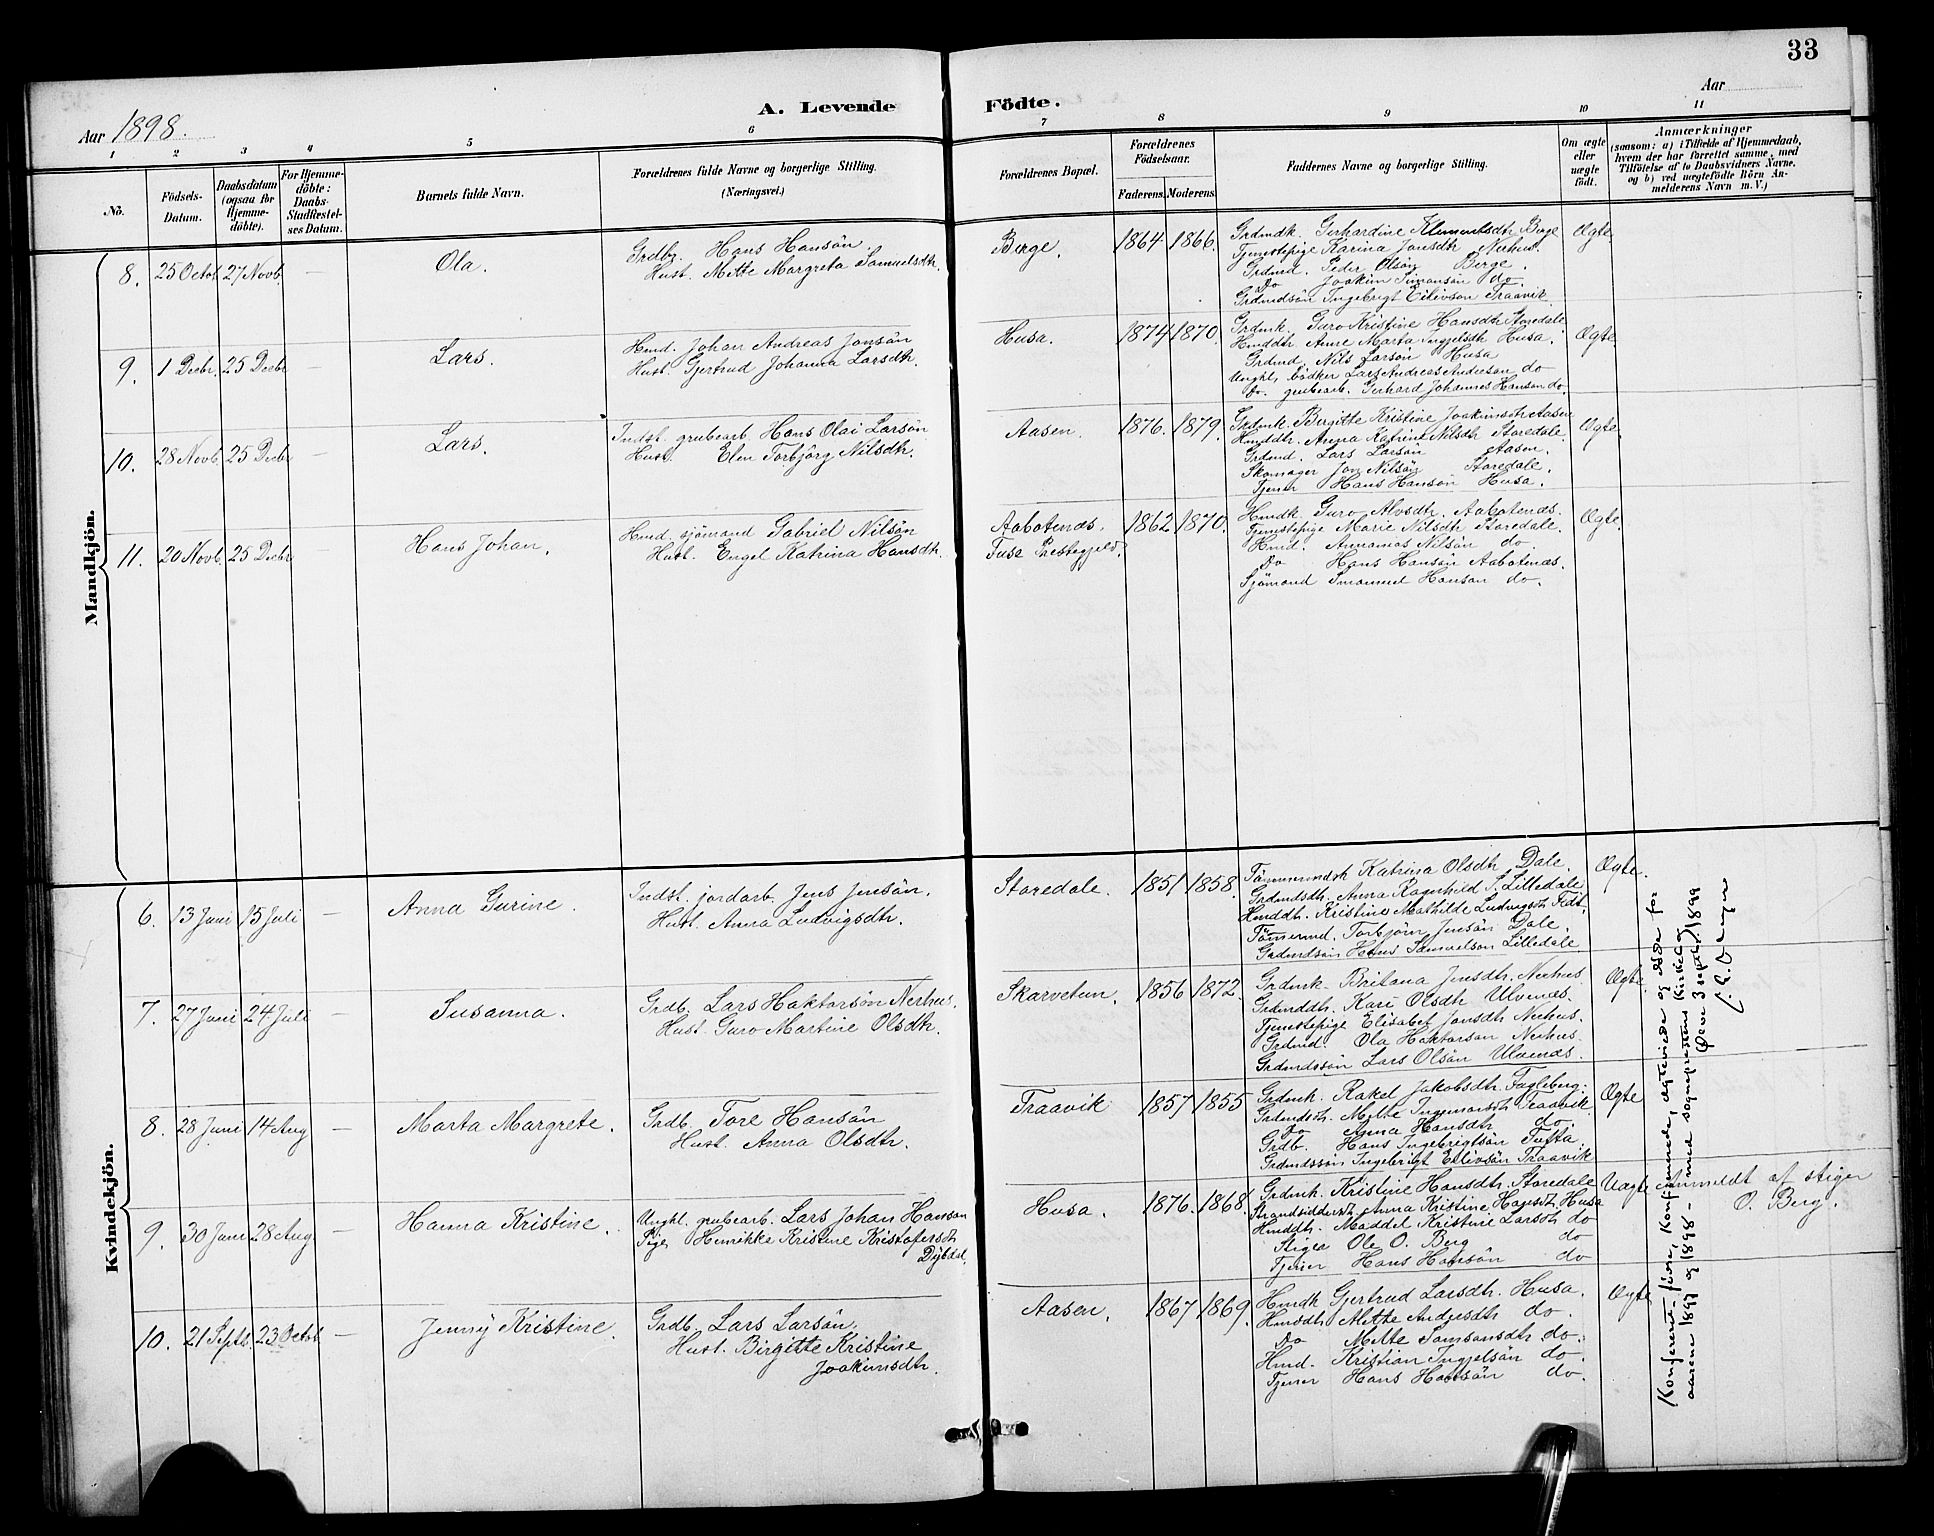 33
A. Levende Födte.
Aar 1898.
Aar
1 2 3 4 5 6 7 8 9 10 11
No.
Födsels-Datum.
Daabsdatum (ogsaa for Hjemme-döbte).
For Hjemme-döbte: Daabs-Stadfestel-ses Datum.
Barnets fulde Navn.
Forældrenes fulde Navne og borgerlige Stilling. (Næringsvei.)
Forældrenes Bopæl.
Forældrenes Födselsaar.
Faderens. Moderens.
Faddernes Navne og borgerlige Stilling.
Om ægte eller uægte födt.
Anmærkninger
(saasom: a) i Tilfælde af Hjemmedaab, hvem der har forrettet samme, med Tilföielse af to Daabsvidners Navne, og b) ved uægtefödte Börn An-melderens Navn m.V.)
Mandkjön.
8. 25 Octob. 27 Novb. — Ola.
Grdbr. Hans Hansön.
Hust. Mette Margreta Samuelsdtr.
Berge. 1864. 1866.
Grdmdk. Gerhardine Klementsdtr Berge
Tjenestepige Karina Jonsdtr Nerhus.
Grdmd. Peder Olsön Berge.
Do Joakim Simonsön do.
Grdmdsön Ingebrigt Eilivsön Traavik.
Ægte
9. 1 Decbr. 25 Decbr — Lars.
Hmd. Johan Andreas Jonsön
Hust. Gjertrud Johanna Larsdtr.
Husa. 1874 1870.
Grdmk. Guro Kristine Hansdtr Storedale
Hmddtr. Anne Marta Ingjelsdtr Husa.
Grdmd. Nils Larsön Husa
Unghl. bödker Lars Andreas Andersen do
Do. grubearb. Gerhard Johannes Hanson do.
Ægte
10. 28 Novb. 25 Decbr — Lars.
Indst. grubearb. Hans Olai Larsön
Hust. Elen Torbjörg Nilsdtr.
Aasen. 1876. 1879.
Grdmk. Birgitte Kristine Joakimsdtr Aasen
Hmddtr. Anna Katrine Nilsdtr Storedale.
Grdmd. Lars Larsön Aasen.
Skomager Jon Nilsön Storedale.
Tjener Hans Hansön Husa.
Ægte.
11. 20 Novb. 25 Decbr — Hans Johan.
Hmd. sjömand Gabriel Nilsön
Hust. Engel Katrina Hansdtr.
Aabotenæs. Fuse Prestegjeld. 1862 1870.
Hmdk. Guro Alvsdtr. Aabotenæs.
Tjenestepige Marie Nilsdtr Storedale.
Hmd. Annanias Nilsön do.
Do Hans Hansön Aabotenæs.
Sjömand Hansön do.
Ægte.
Kvindekjön.
6. 13 Juni 15 Juli — Anna Gurine.
Indst. jordarb. Jens Jensön.
Hust. Anna Ludvigsdtr.
Storedale. 1851 1858.
Tömmermdsk Katrina Olsdtr. Dale.
Grdmdsdtr. Anna Ragnhild S. Lilledale
Hmddtr. Kristine Mathilde Ludvigsdtr
Tömmermd. Torbjörn Jensön Dale.
Grdmdsön Hans Samuelson Lilledale
Ægte.
7. 27 Juni 24 Juli — Susanna.
Grdb. Lars Haktorsön Nerhus.
Hust. Guro Martine Olsdtr.
Skarvetun. 1856 1872.
Grdmk. Britana Jensdtr. Nerhus
Grdmddtr. Kari Olsdtr Ulvenæs.
Tjenestepige Elisabet Jonsdtr Nerhus.
Grdmd. Ola Haktorson Nerhus.
Grdmdssön Lars Olsön Ulvenæs.
Ægte.
8. 28 Juni 14 Aug — Marta Margrete.
Grdb. Tore Hansön
Hust. Anna Olsdtr.
Traavik 1857 1855
Grdmk. Rakel Jakobsdtr. Fagleberg.
Grdmdsdtr. Mette Traavik
Do Anna Hansdtr do.
Grdb. Hans Ingebrigtsön Tufta.
Grdmdssön Ingebrigt Eilivsön Traavik
Ægte
9. 30 Juni 28 Aug — Hanna Kristine.
Unghl. grubearb. Lars Johan Hanson
Pige Henrikke Kristine Kristofersdtr Dybdal.
Husa. 1876. 1868.
Grdmk. Kristine Hansdtr. Storedale
Strandsiddersdtr Anna Kristine Hansdtr. Husa
Hmddtr. Maddel Kristine Larsdtr do
Stiger Ole O. Berg do
Tjener Hans Hansön do
Uægte
Anmeldt af stiger O. Berg.
10. 21 Septb. 23 Octob — Jenny Kristine.
Grdb. Lars Larsön.
Hust. Birgitte Kristine Joakimsdtr.
Aasen. 1867 1869.
Hmdk Gjertrud Larsdtr. Husa.
Hmddtr. Mette Andersdtr do.
Do Mette Samsonsdtr do.
Hmd. Kristian Ingjelsön do.
Tjener Hans Hansön do.
Ægte
Konfereret føire, konfirmerede, ægteviede og døde for
aarene 1897 og 1898 — med sogneprestens kirkebog
Øvve 3 septbr 1899